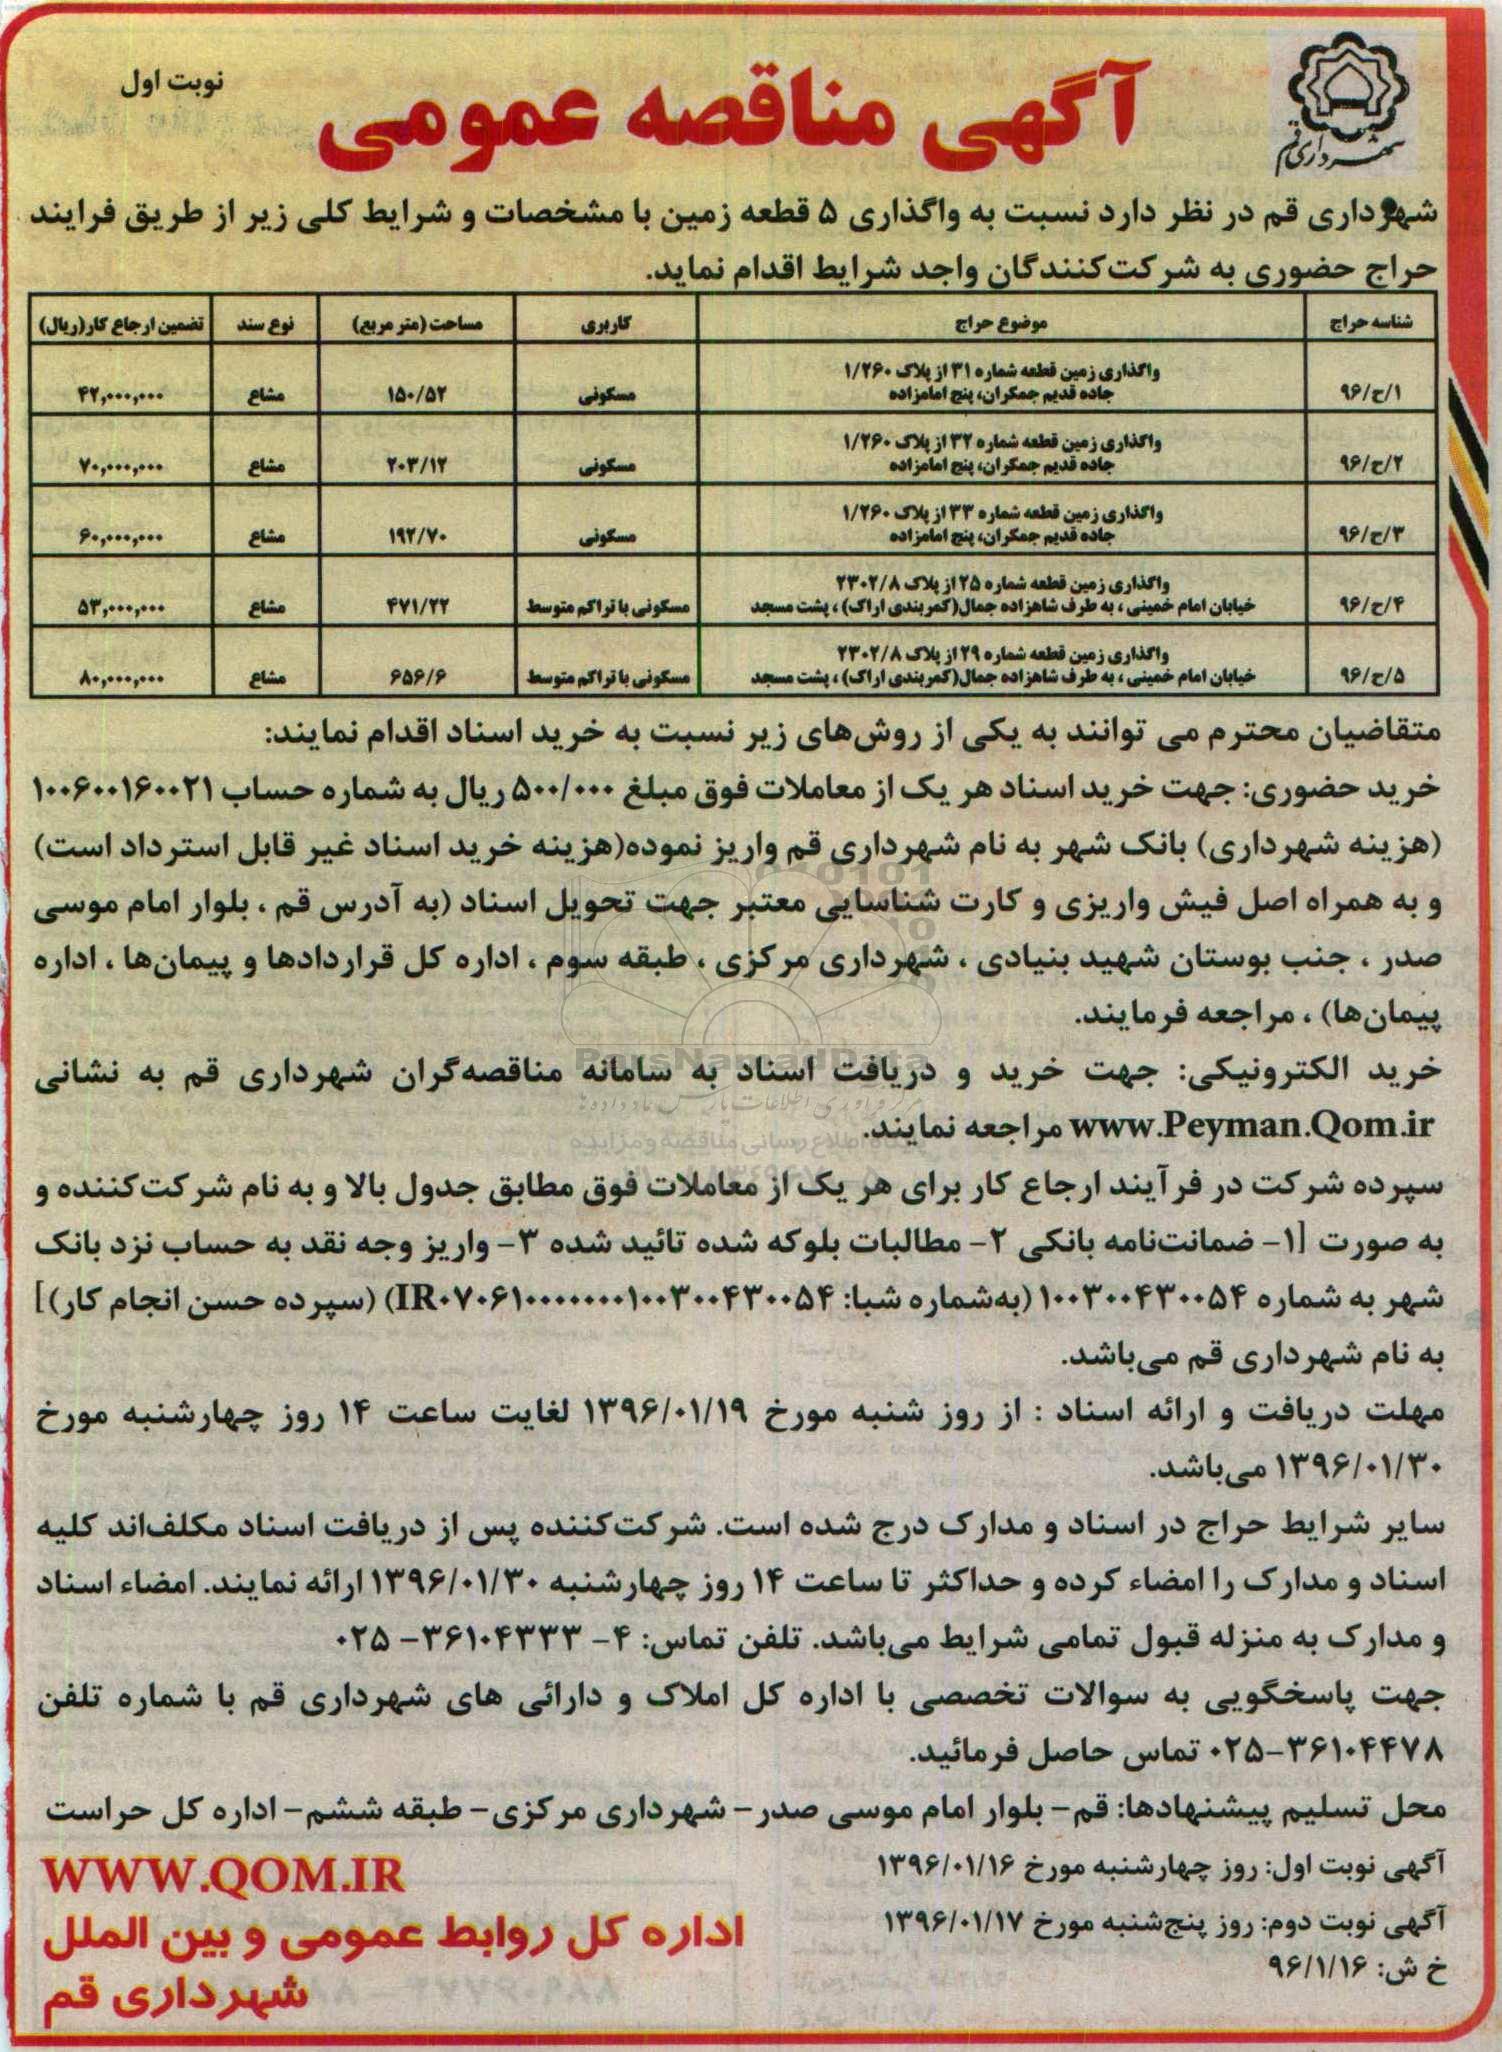 شهرداری قم
نوبت اول
آگهی مناقصه عمومی
شهرداری قم در نظر دارد نسبت به واگذاری ۵ قطعه زمین با مشخصات و شرایط کلی زیر از طریق فرایند
حراج حضوری به شرکت‌کنندگان واجد شرایط اقدام نماید.
شناسه حراج | موضوع حراج | کاربری | مساحت (متر مربع) | نوع سند | تضمین ارجاع کار(ریال)
۱/ح/۹۶ | واگذاری زمین قطعه شماره ۳۱ از پلاک ۱/۲۶۰ جاده قدیم جمکران، پنج امامزاده | مسکونی | ۱۵۰/۵۲ | مشاع | ۴۲,۰۰۰,۰۰۰
۲/ح/۹۶ | واگذاری زمین قطعه شماره ۳۲ از پلاک ۱/۲۶۰ جاده قدیم جمکران، پنج امامزاده | مسکونی | ۲۰۳/۱۲ | مشاع | ۷۰,۰۰۰,۰۰۰
۳/ح/۹۶ | واگذاری زمین قطعه شماره ۳۳ از پلاک ۱/۲۶۰ جاده قدیم جمکران، پنج امامزاده | مسکونی | ۱۹۲/۷۰ | مشاع | ۶۰,۰۰۰,۰۰۰
۴/ح/۹۶ | واگذاری زمین قطعه شماره ۲۵ از پلاک ۲۳۰۲/۸ خیابان امام خمینی ، به طرف شاهزاده جمال(کمربندی اراک) ، پشت مسجد | مسکونی با تراکم متوسط | ۴۷۱/۲۲ | مشاع | ۵۳,۰۰۰,۰۰۰
۵/ح/۹۶ | واگذاری زمین قطعه شماره ۲۹ از پلاک ۲۳۰۲/۸ خیابان امام خمینی ، به طرف شاهزاده جمال(کمربندی اراک) ، پشت مسجد | مسکونی با تراکم متوسط | ۶۵۶/۶ | مشاع | ۸۰,۰۰۰,۰۰۰
متقاضیان محترم می توانند به یکی از روش‌های زیر نسبت به خرید اسناد اقدام نمایند:
خرید حضوری: جهت خرید اسناد هر یک از معاملات فوق مبلغ ۵۰۰/۰۰۰ ریال به شماره حساب ۱۰۰۶۰۰۱۶۰۰۲۱
(هزینه شهرداری) بانک شهر به نام شهرداری قم واریز نموده(هزینه خرید اسناد غیر قابل استرداد است)
و به همراه اصل فیش واریزی و کارت شناسایی معتبر جهت تحویل اسناد (به آدرس قم ، بلوار امام موسی
صدر ، جنب بوستان شهید بنیادی ، شهرداری مرکزی ، طبقه سوم ، اداره کل قراردادها و پیمان‌ها ، اداره
پیمان‌ها) ، مراجعه فرمایند.
خرید الکترونیکی: جهت خرید و دریافت اسناد به سامانه مناقصه‌گران شهرداری قم به نشانی
www.Peyman.Qom.ir مراجعه نمایند.
سپرده شرکت در فرآیند ارجاع کار برای هر یک از معاملات فوق مطابق جدول بالا و به نام شرکت‌کننده و
به صورت [۱- ضمانت‌نامه بانکی ۲- مطالبات بلوکه شده تائید شده ۳- واریز وجه نقد به حساب نزد بانک
شهر به شماره ۱۰۰۳۰۰۴۳۰۰۵۴ (به‌شماره شبا: IR۰۷۰۶۱۰۰۰۰۰۰۰۱۰۰۳۰۰۴۳۰۰۵۴) (سپرده حسن انجام کار)]
به نام شهرداری قم می‌باشد.
مهلت دریافت و ارائه اسناد : از روز شنبه مورخ ۱۳۹۶/۰۱/۱۹ لغایت ساعت ۱۴ روز چهارشنبه مورخ
۱۳۹۶/۰۱/۳۰ می‌باشد.
سایر شرایط حراج در اسناد و مدارک درج شده است. شرکت‌کننده پس از دریافت اسناد مکلف‌اند کلیه
اسناد و مدارک را امضاء کرده و حداکثر تا ساعت ۱۴ روز چهارشنبه ۱۳۹۶/۰۱/۳۰ ارائه نمایند. امضاء اسناد
و مدارک به منزله قبول تمامی شرایط می‌باشد. تلفن تماس: ۴- ۳۶۱۰۴۳۳۳- ۰۲۵
جهت پاسخگویی به سوالات تخصصی با اداره کل املاک و دارائی های شهرداری قم با شماره تلفن
۰۲۵-۳۶۱۰۴۴۷۸ تماس حاصل فرمائید.
محل تسلیم پیشنهادها: قم- بلوار امام موسی صدر- شهرداری مرکزی- طبقه ششم- اداره کل حراست
آگهی نوبت اول: روز چهارشنبه مورخ ۱۳۹۶/۰۱/۱۶
آگهی نوبت دوم: روز پنج‌شنبه مورخ ۱۳۹۶/۰۱/۱۷
خ ش: ۹۶/۱/۱۶
WWW.QOM.IR
اداره کل روابط عمومی و بین الملل
شهرداری قم
ParsNamadData